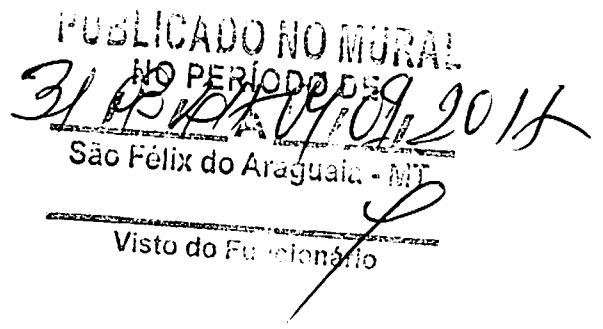 PUBLICADO NO MURAL
NO PERÍODO DE
31 A 01/09/2017
São Félix do Araguaia - MT
Visto do Funcionário